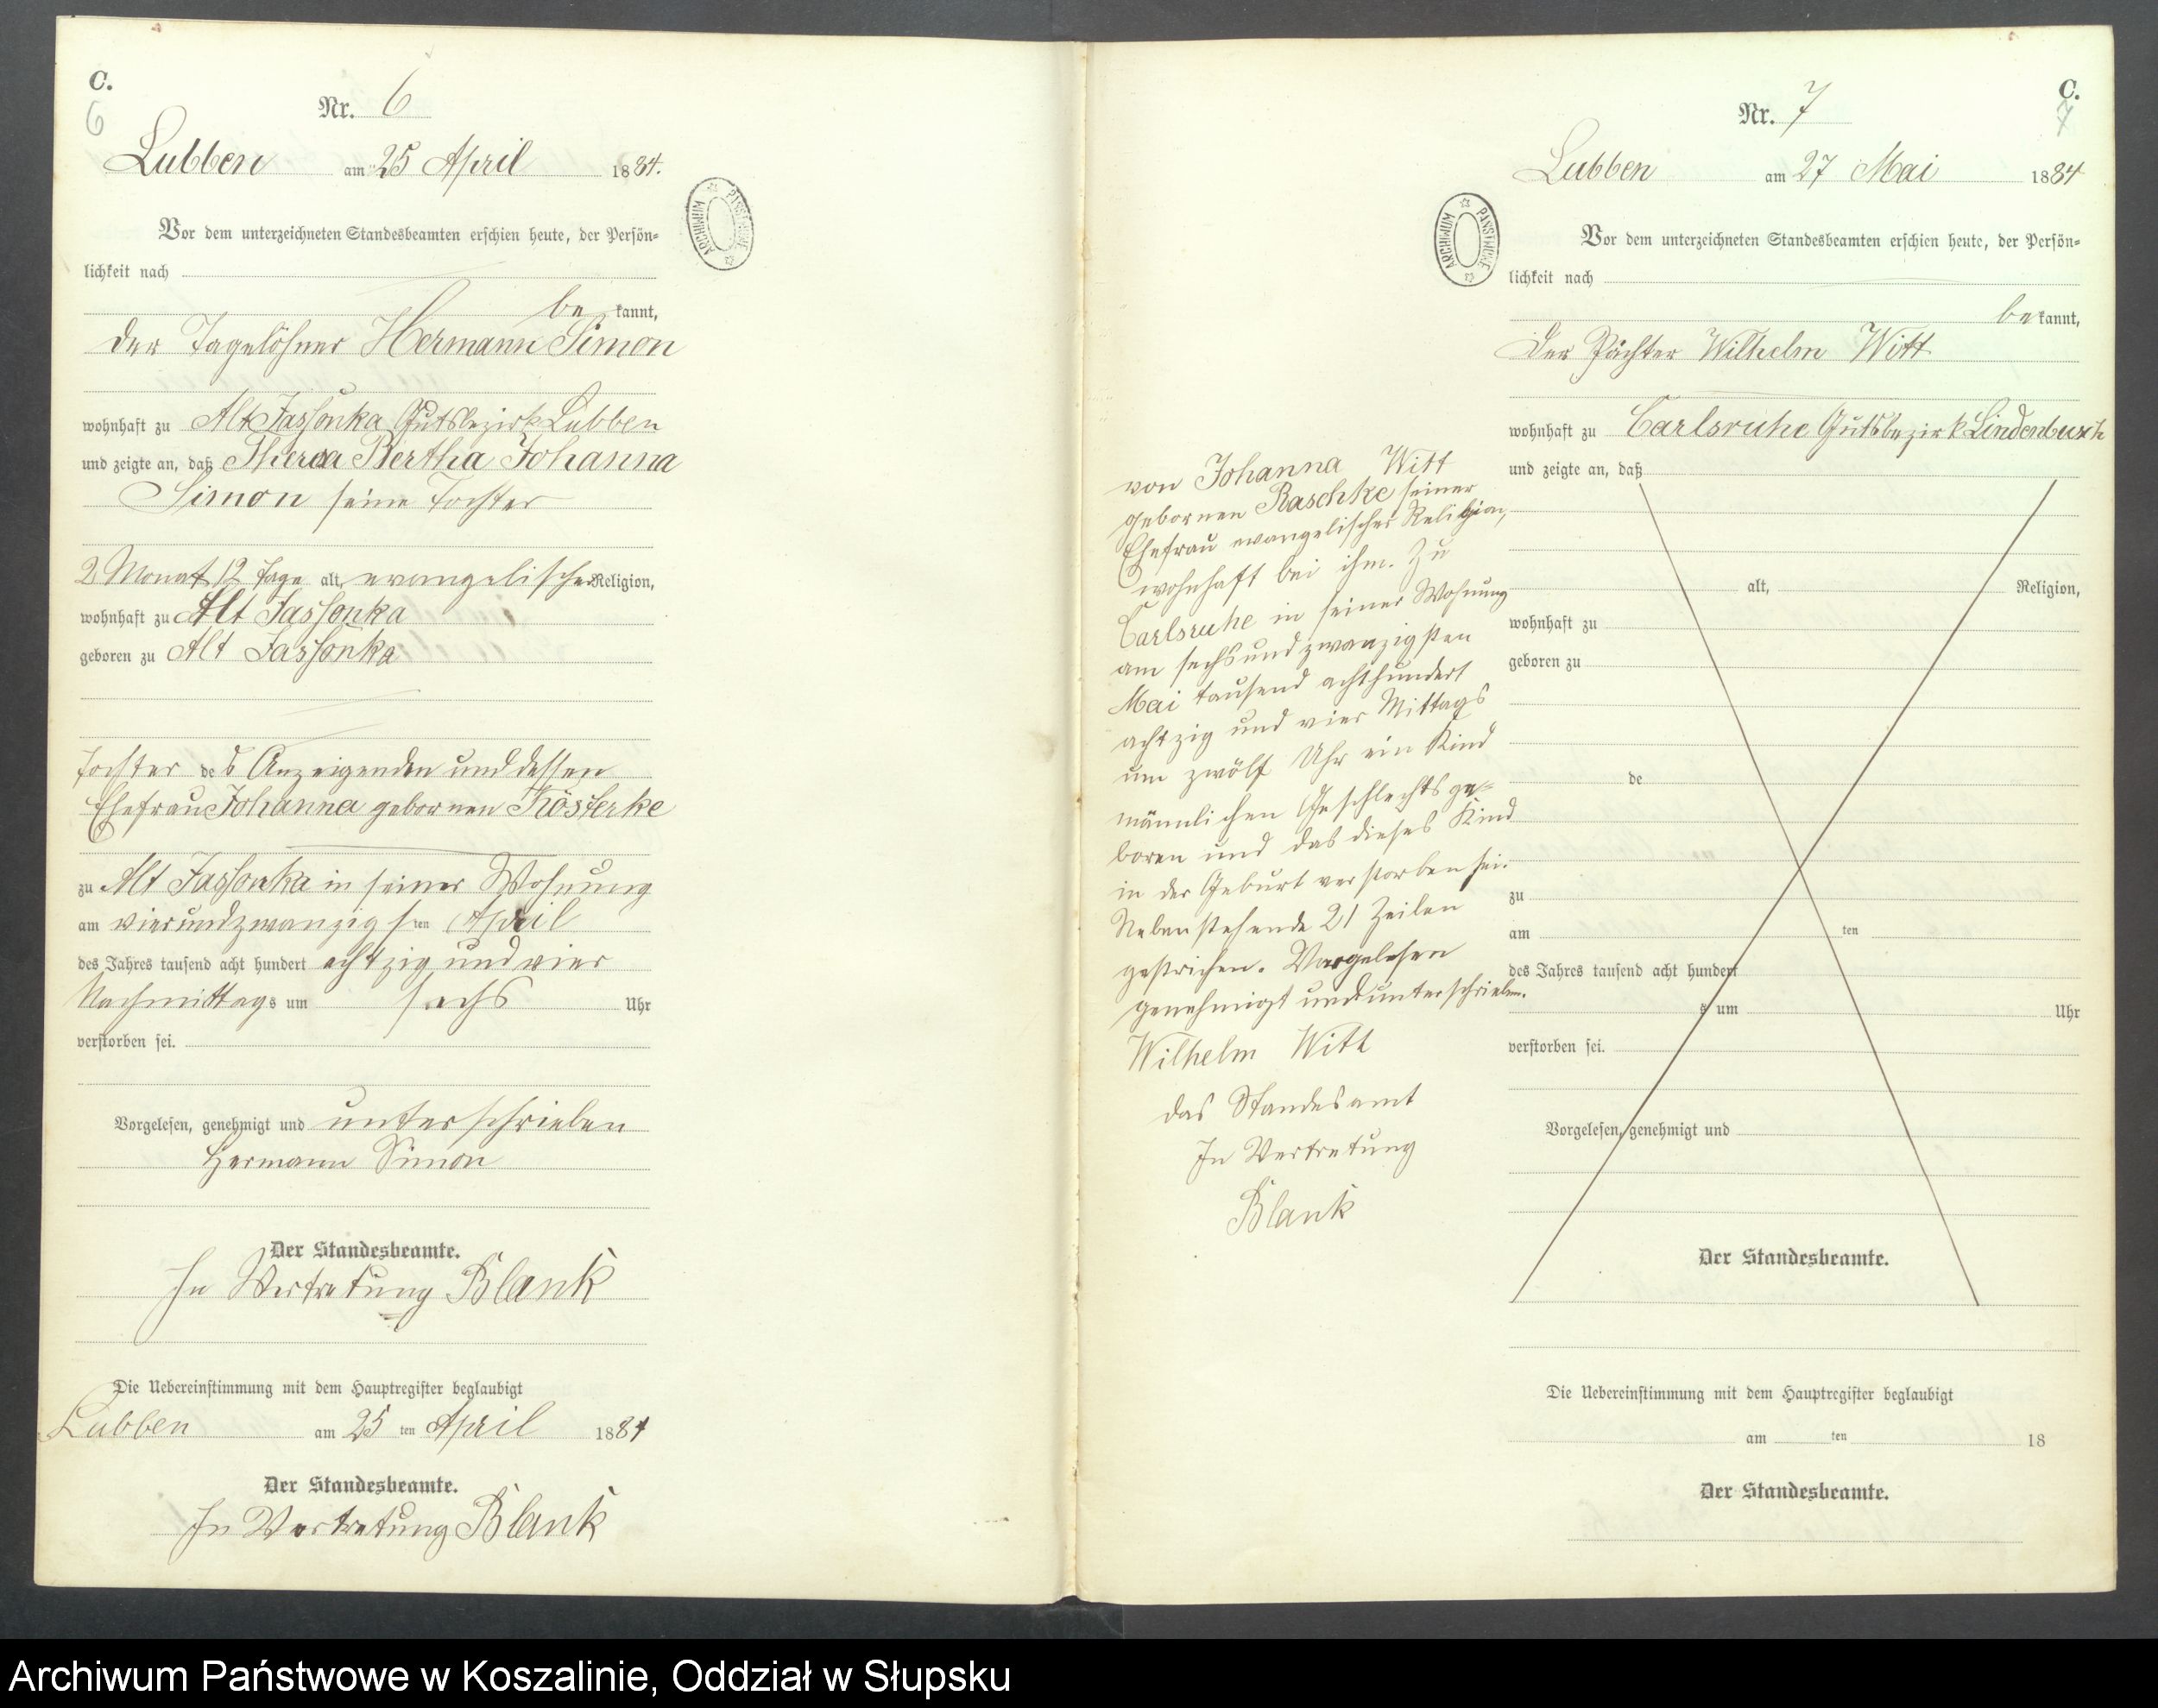 C.
6
Nr. 6
Lubben am 25 April 1884.
Vor dem unterzeichneten Standesbeamten erschien heute, der Persön=
lichkeit nach
be kannt,
der Tagelöhner Hermann Simon
wohnhaft zu Alt Jassonka Gutsbezirk Lubben
und zeigte an, daß Theresa Bertha Johanna
Simon seine Tochter
2 Monat 12 Tage alt, evangelischer Religion,
wohnhaft zu Alt Jassonka
geboren zu Alt Jassonka
Tochter des Anzeigenden und dessen
Ehefrau Johanna gebornen Kösterke
zu Alt Jassonka in seiner Wohnung
am vierundzwanzigsten April
des Jahres tausend acht hundert achtzig und vier
Nachmittags um sechs Uhr
verstorben sei.
Vorgelesen, genehmigt und unterschrieben
Hermann Simon
Der Standesbeamte.
In Vertretung Blank
Die Uebereinstimmung mit dem Hauptregister beglaubigt
Lubben am 25 ten April 1884
Der Standesbeamte.
In Vertretung Blank
ARCHIWUM PAŃSTWOWE
C.
7
Nr. 7
Lubben am 27 Mai 1884
ARCHIWUM PAŃSTWOWE
Vor dem unterzeichneten Standesbeamten erschien heute, der Persön=
lichkeit nach
be kannt,
der Pächter Wilhelm Witt
wohnhaft zu Carlsruhe Gutsbezirk Lindenbusch
und zeigte an, daß
alt, Religion,
wohnhaft zu
geboren zu
de
zu
am ten
des Jahres tausend acht hundert
s um Uhr
verstorben sei.
Vorgelesen, genehmigt und
Der Standesbeamte.
Die Uebereinstimmung mit dem Hauptregister beglaubigt
am ten 18
Der Standesbeamte.
von Johanna Witt
gebornen Raschke seiner
Ehefrau evangelischer Religion,
wohnhaft bei ihm. Zu
Carlsruhe in seiner Wohnung
am sechsundzwanzigsten
Mai tausend achthundert
achtzig und vier Mittags
um zwölf Uhr ein Kind
männlichen Geschlechts ge=
boren und das dieses Kind
in der Geburt verstorben sei.
Nebenstehende 21 Zeilen
gestrichen. Vorgelesen
genehmigt und unterschrieben.
Wilhelm Witt
das Standesamt
In Vertretung
Blank
Archiwum Państwowe w Koszalinie, Oddział w Słupsku